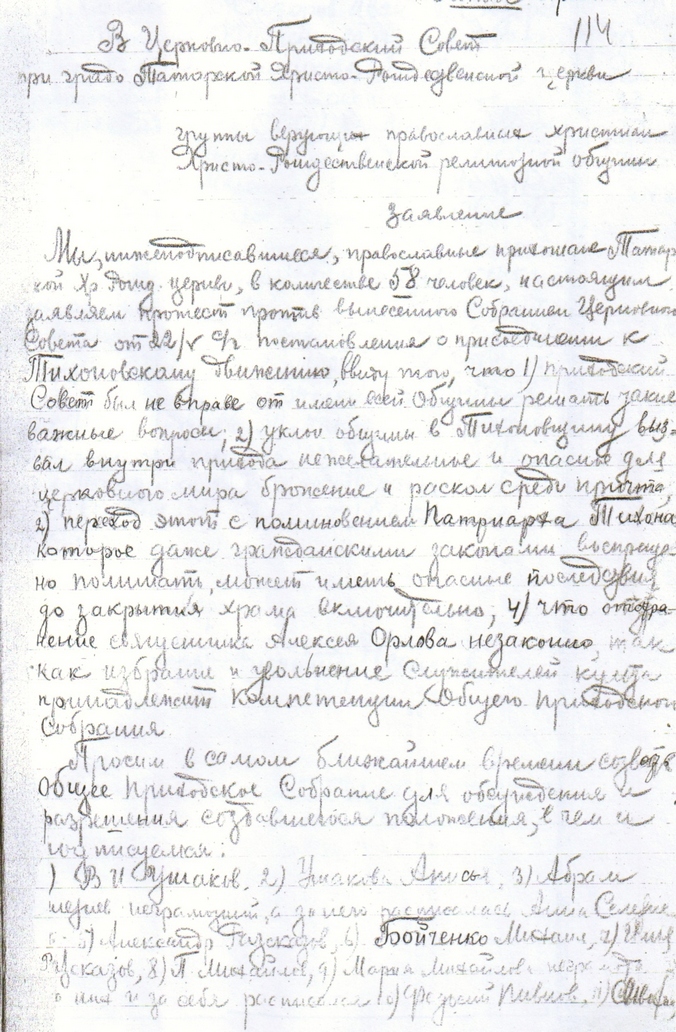 114
В Церковно-Приходский Совет
при градо Татарской Христо-Рождественской церкви
группы верующих православных христиан
Христо-Рождественской религиозной общины
заявление
Мы, нижеподписавшиеся, православные прихожане Татар
кой Хр Рожд. церкви, в количестве 58 человек, настоящим
заявляем протест против вынесенного Собранием Церковного
Совета от 22/v с/г постановления о присоединении к
Тихоновскому движению, ввиду того, что 1) Приходский
Совет был не вправе от имени всей Общины решать такие
важные вопросы; 2) уклон общины в Тихоновщину выз-
вал внутри прихода нежелательное и опасное для
церковного мира брожение и раскол среди причта,
3) переход этот с поминовением Патриарха Тихона
которое даже гражданскими законами воспреще-
но поминать, может иметь опасные последствия
до закрытия храма включительно; 4) что отстра-
нение священника Алексея Орлова незаконно, так
как избрание и увольнение служителей культа
принадлежит компетенции Общего Приходского
Собрания
Просим в самом ближайшем времени созвать
Общее Приходское Собрание для обсуждения и
разрешения создавшегося положения, в чем и
подписуемся:
1) В И Ушаков, 2) Ушакова Анисья, 3) Абрам
неграмотный, а за него расписалась Анна
5) Александр Разсказов, 6) Бойченко Михаил, 7)
Русказов, 8) П. Михайлов, 9) Мария Михайлова неграмот
них и за себя расписался 10) Пивнов, 11)